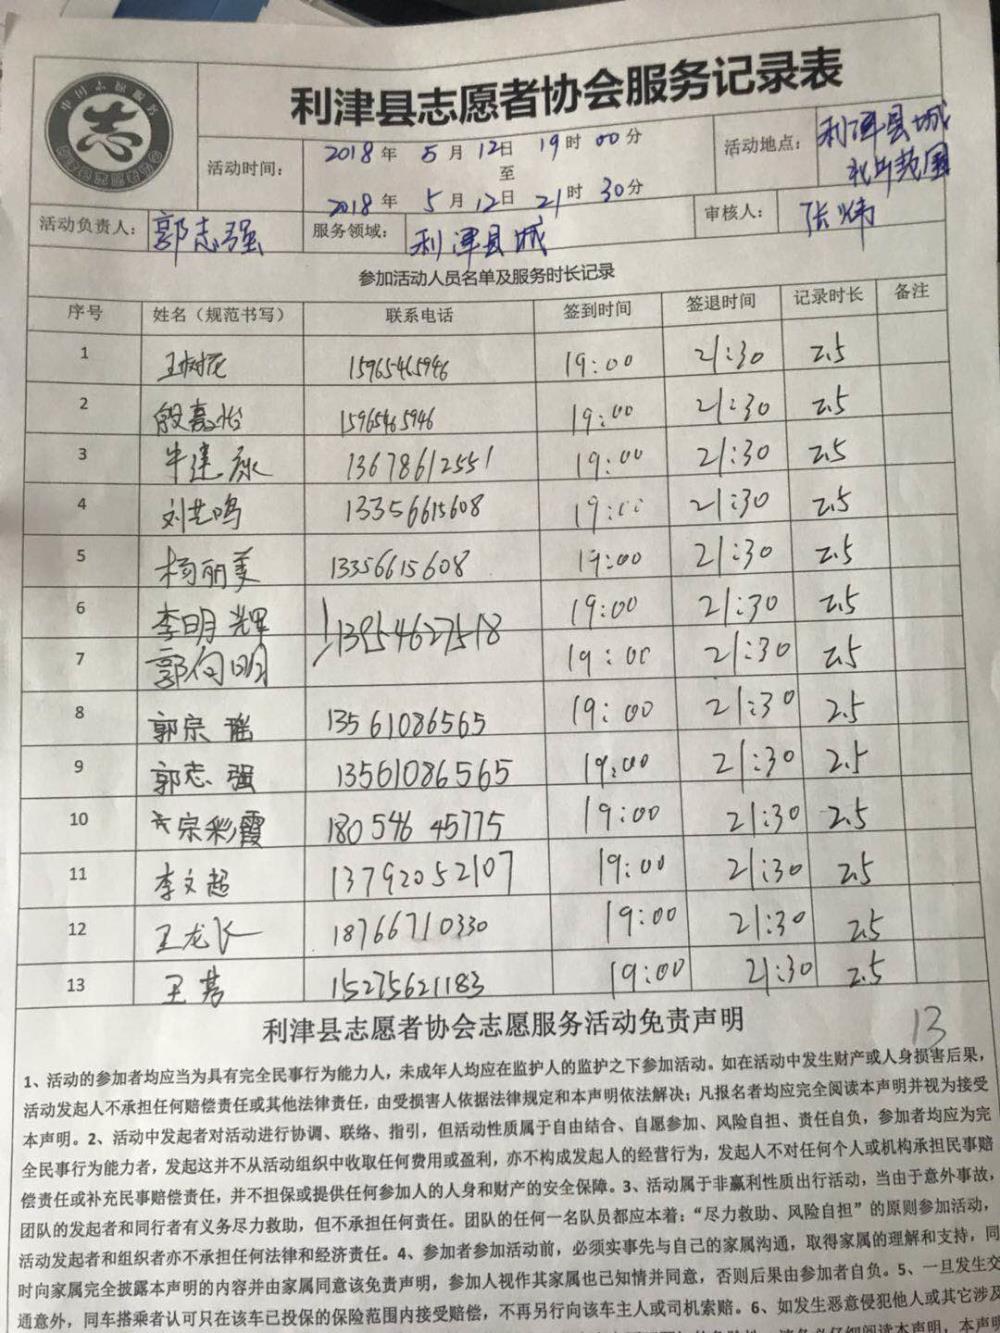 利津县志愿者协会服务记录表
中国志愿服务
志
活动时间： 2018年 5月 12日 19时 00分
至
2018年 5月 12日 21时 30分
活动地点： 利津县城
活动负责人： 郭志强 服务领域： 利津县城 审核人： 张炜
参加活动人员名单及服务时长记录
序号 姓名（规范书写） 联系电话 签到时间 签退时间 记录时长 备注
1 王树花 15965465946 19:00 21:30 2.5
2 殷嘉怡 15965465946 19:00 21:30 2.5
3 牛建 13678612551 19:00 21:30 2.5
4 刘艺鸣 13356615608 19:00 21:30 2.5
5 杨丽美 13356615608 19:00 21:30 2.5
6 李明辉 13954627518 19:00 21:30 2.5
7 郭向明 19:00 21:30 2.5
8 郭宗瑶 13561086565 19:00 21:30 2.5
9 郭志强 13561086565 19:00 21:30 2.5
10 宗彩霞 18054645775 19:00 21:30 2.5
11 李文超 13792052107 19:00 21:30 2.5
12 王龙飞 18766710330 19:00 21:30 2.5
13 王茜 15275621183 19:00 21:30 2.5
利津县志愿者协会志愿服务活动免责声明
13
1、活动的参加者均应当为具有完全民事行为能力人，未成年人均应在监护人的监护之下参加活动。如在活动中发生财产或人身损害后果，
活动发起人不承担任何赔偿责任或其他法律责任，由受损害人依据法律规定和本声明依法解决；凡报名者均应完全阅读本声明并视为接受
本声明。2、活动中发起者对活动进行协调、联络、指引，但活动性质属于自由结合、自愿参加、风险自担、责任自负，参加者均应为完
全民事行为能力者，发起这并不从活动组织中收取任何费用或盈利，亦不构成发起人的经营行为，发起人不对任何个人或机构承担民事赔
偿责任或补充民事赔偿责任，并不担保或提供任何参加人的人身和财产的安全保障。3、活动属于非赢利性质出行活动，当由于意外事故，
团队的发起者和同行者有义务尽力救助，但不承担任何责任。团队的任何一名队员都应本着：“尽力救助、风险自担”的原则参加活动，
活动发起者和组织者亦不承担任何法律和经济责任。4、参加者参加活动前，必须实事先与自己的家属沟通，取得家属的理解和支持，同
时向家属完全披露本声明的内容并由家属同意该免责声明，参加人视作其家属也已知情并同意，否则后果由参加者自负。5、一旦发生交
通意外，同车搭乘者认可只在该车已投保的保险范围内接受赔偿，不再另行向该车主人或司机索赔。6、如发生恶意侵犯他人或其它涉及